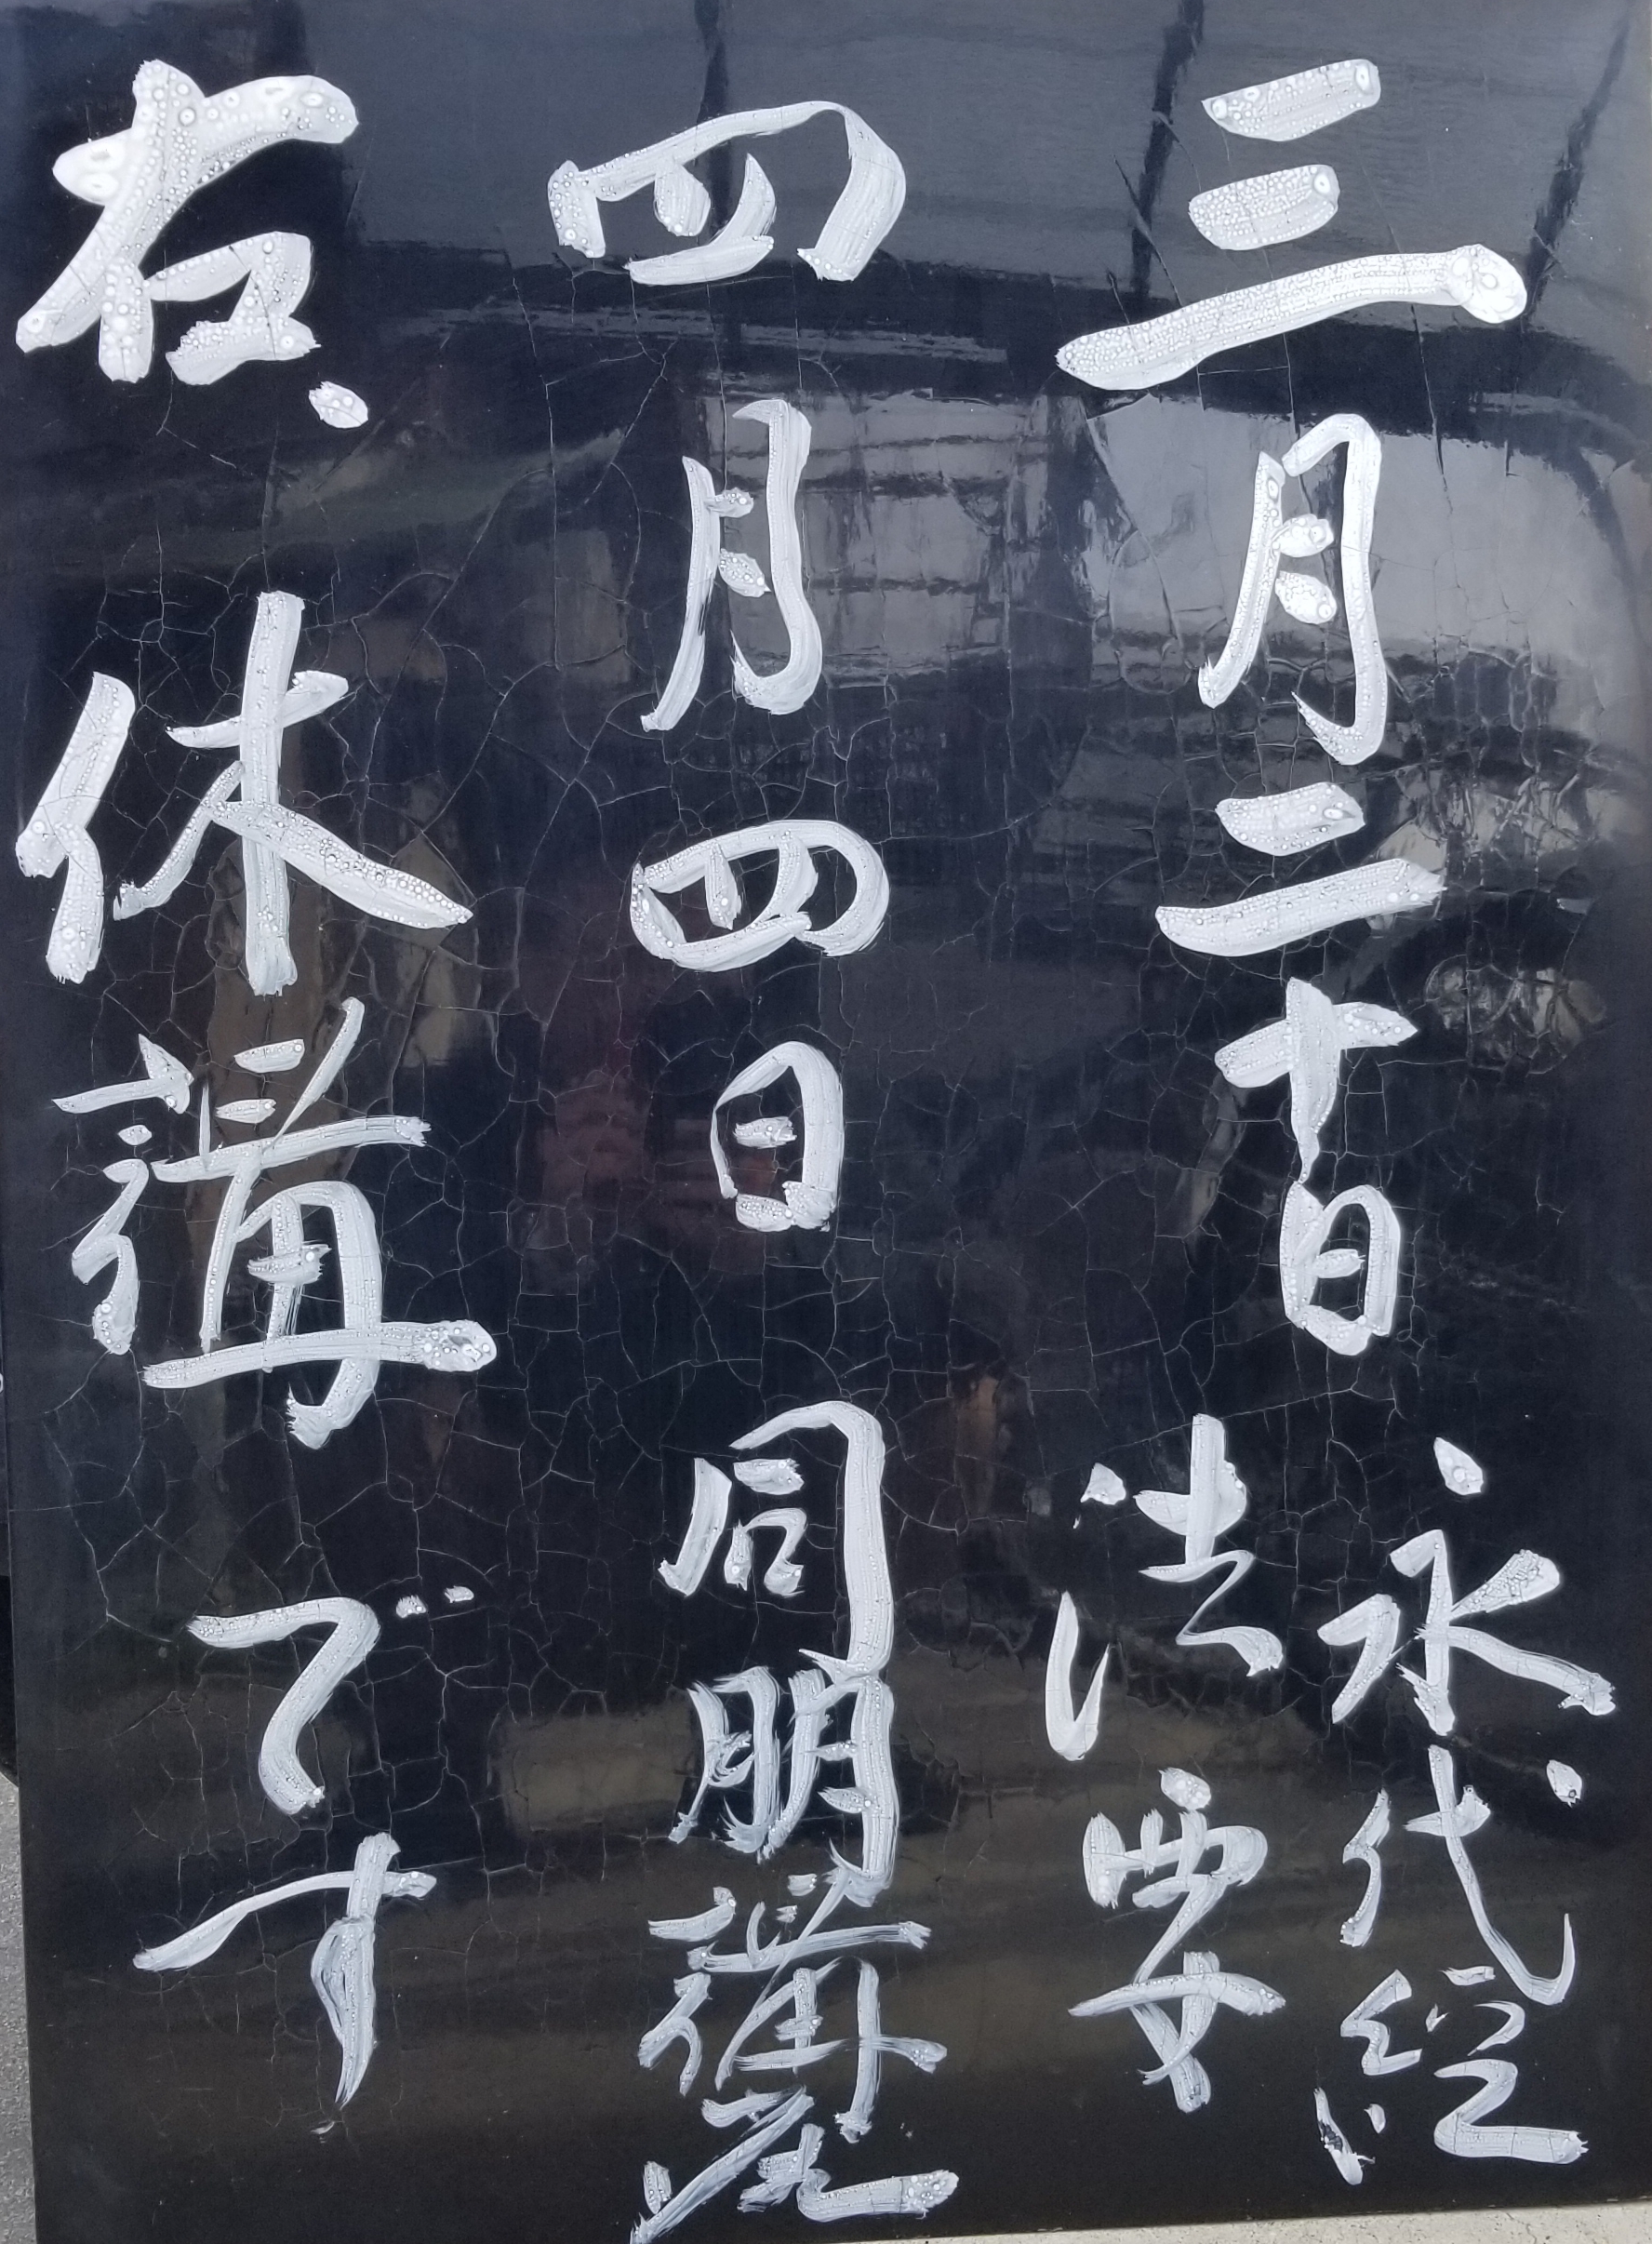 三月二十日 永代経
法要
四月四日 同朋講座
右、休講です